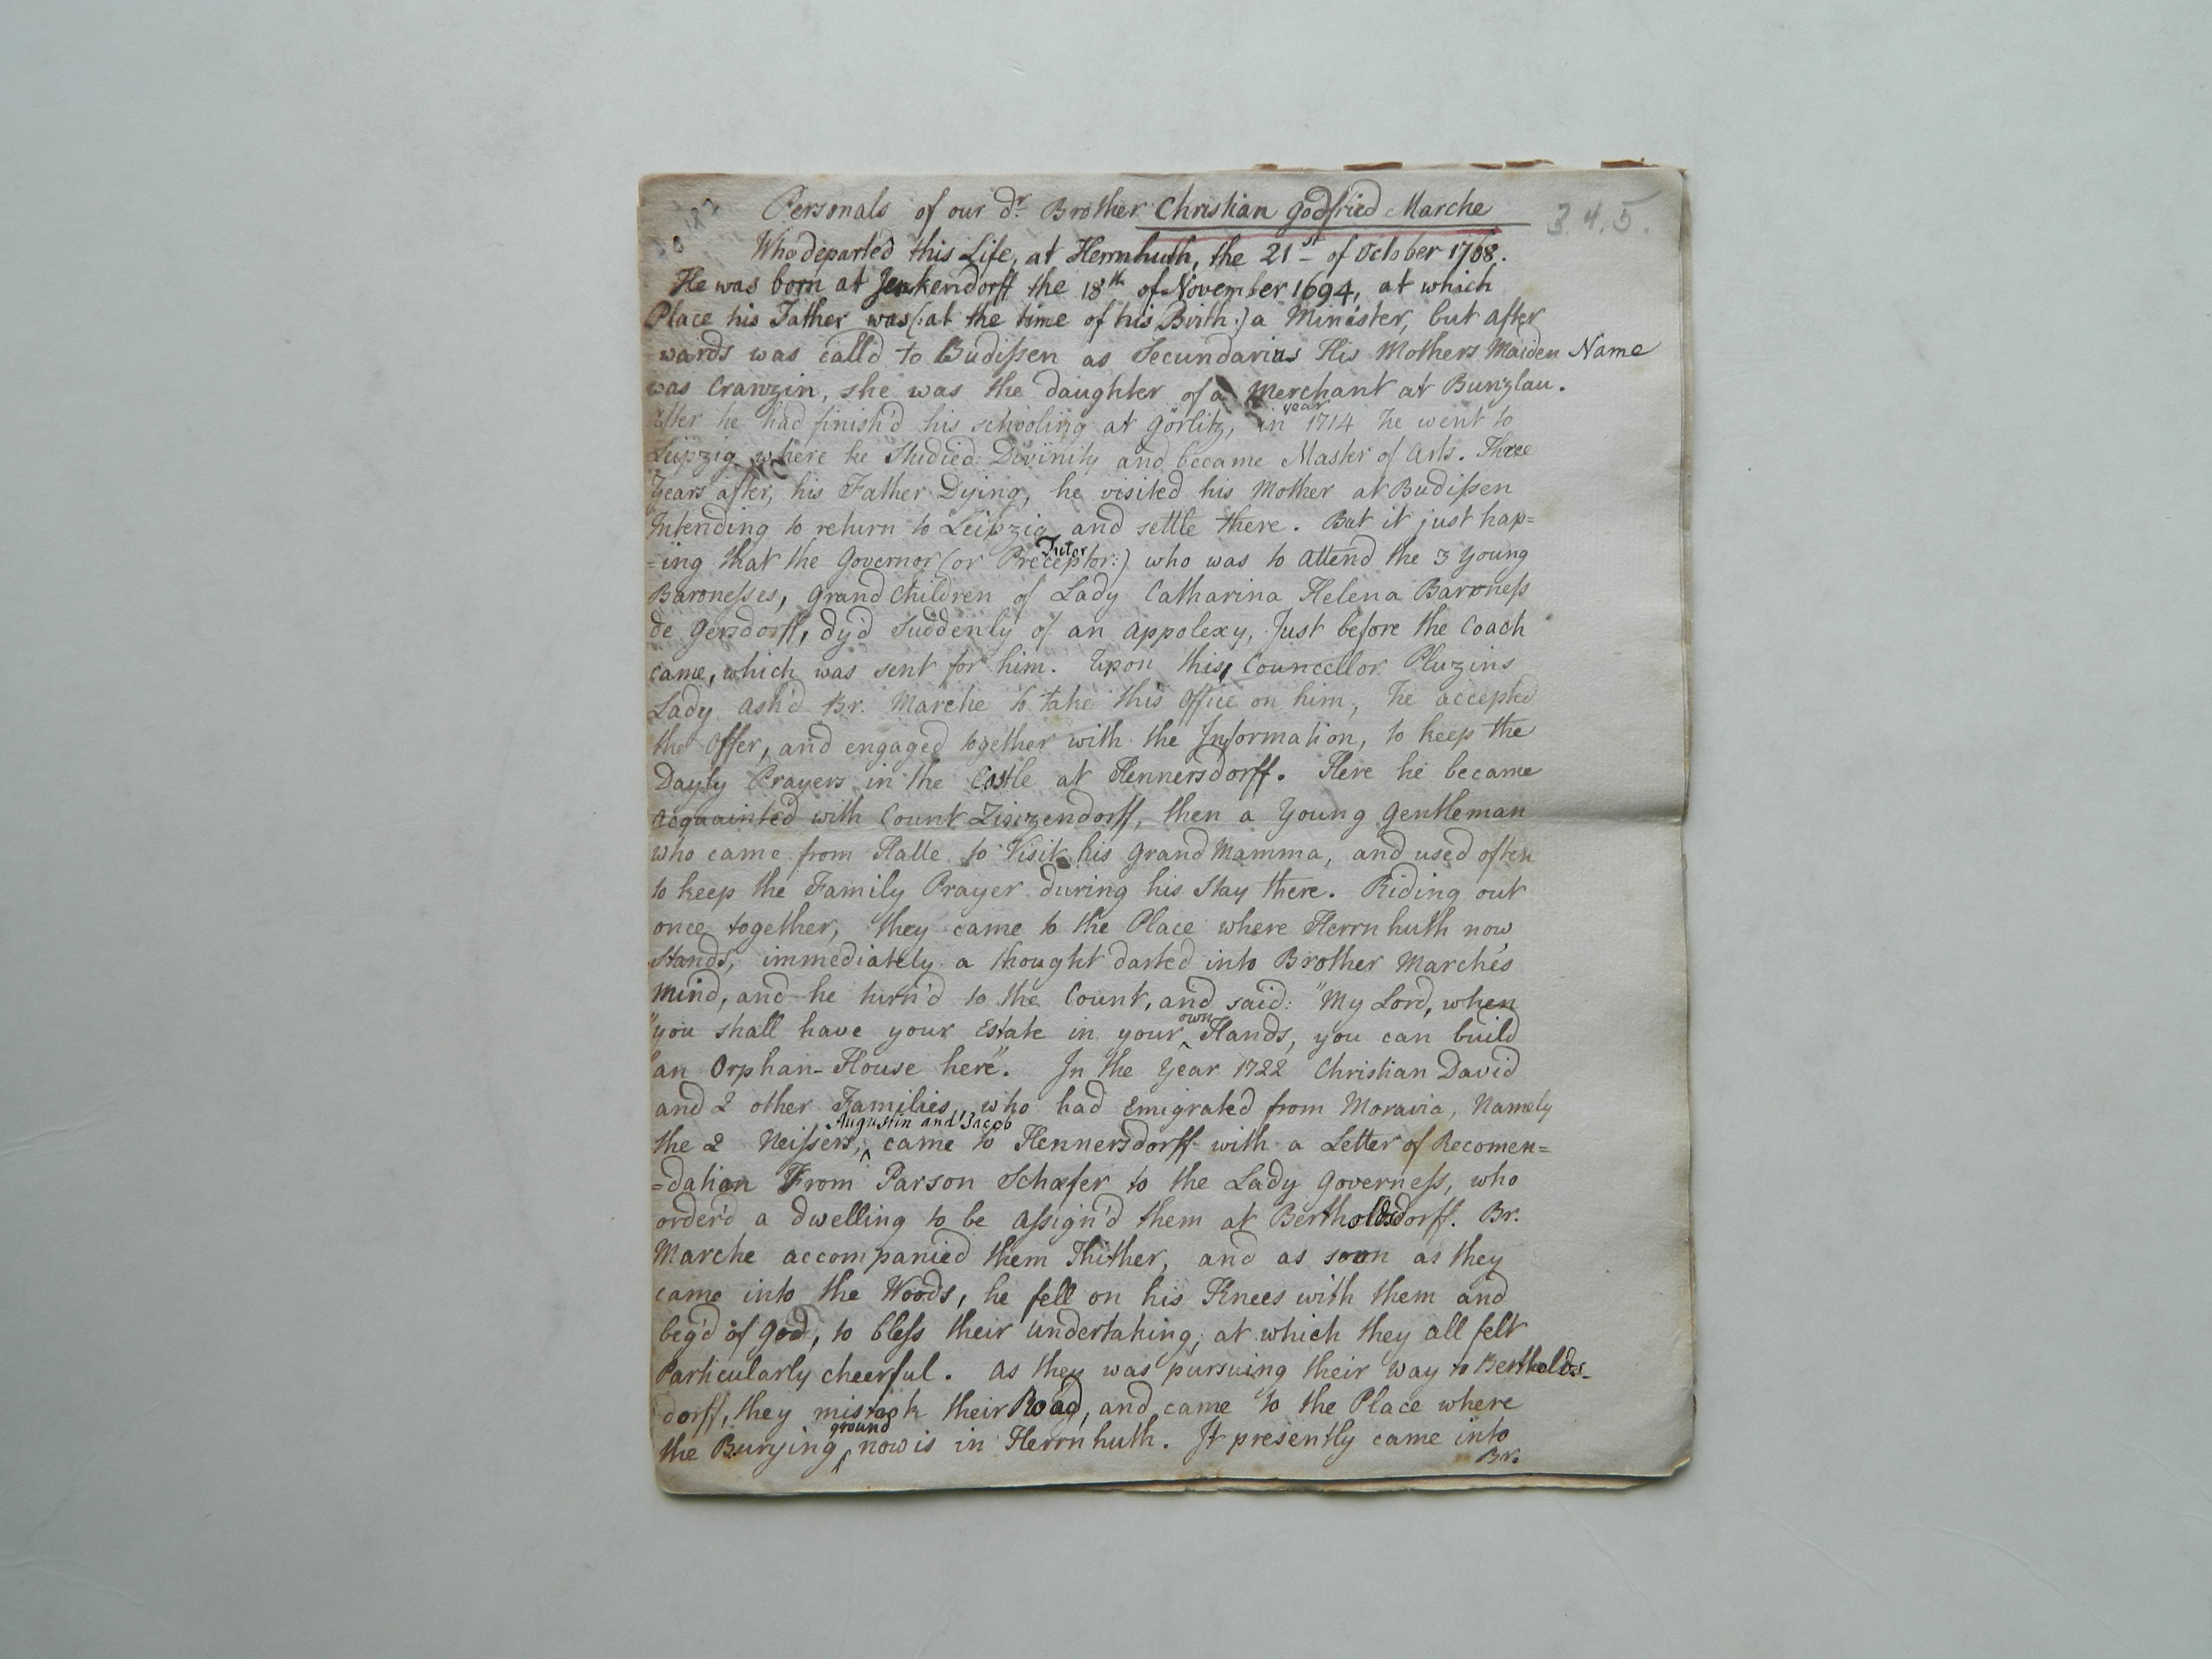 Personals of our dr. Brother Christian Godfried Marche
3.4.5.
Who departed this Life, at Herrnhuth, the 21st of October 1768.
He was born at Jenkendorff the 18th of November 1694, at which
Place his Father was (: at the time of his Birth :) a Minister, but after
-wards was call'd to Budissen as Secundarius His Mothers Maiden Name
was Cranzin, she was the daughter of a Merchant at Bunzlau.
After he had finish'd his schooling at Görlitz, in year 1714 he went to
Leipzig where he Studied Divinity and became Master of Arts. Three
Years after, his Father Dying, he visited his Mother at Budissen
Intending to return to Leipzig and settle there. But it just hap=
=ing that the Governor (or Preceptor :) Tutor who was to attend the 3 young
Baronesses, Grand Children of Lady Catharina Helena Baroness
de Gersdorff, dy'd suddenly of an Appolexy, Just before the Coach
came, which was sent for him. Upon this, Councellor Pluzins
Lady ask'd Br. Marche to take this Office on him, he accepted
the Offer, and engaged together with the Information, to keep the
Dayly Prayers in the Castle at Hennersdorff. Here he became
acquainted with Count Zinzendorff, then a Young Gentleman
who came from Halle to Visit his Grand Mamma, and used often
to keep the Family Prayer during his Stay there. Riding out
once together, they came to the Place where Herrnhuth now
Stands, immediately a thought darted into Brother Marche's
Mind, and he turn'd to the Count, and said: "My Lord, when
"you shall have your Estate in your own Hands, you can build
"an Orphan-House here". In the Year 1722 Christian David
and 2 other Families, who had Emigrated from Moravia, Namely
the 2 Neissers, Augustin and Jacob came to Hennersdorff with a Letter of Recomen=
=dation From Parson Schæfer to the Lady Governess, who
order'd a dwelling to be Assign'd them at Bertholdsdorff. Br.
Marche accompanied them Thither, and as soon as they
came into the Woods, he fell on his Knees with them and
beg'd of God, to bless their undertaking, at which they all felt
Particularly cheerful. As they was pursuing their way to Bertholds-
dorff, they mistook their Road, and came to the Place where
the Burying ground now is in Herrnhuth. It presently came into
Br.